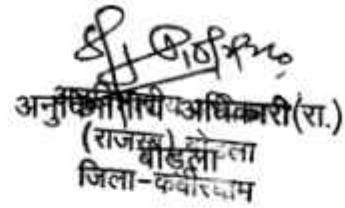 अनुविभागीय अधिकारी (रा.)
(राजस्व) बोडला
बोडला
जिला-कबीरधाम